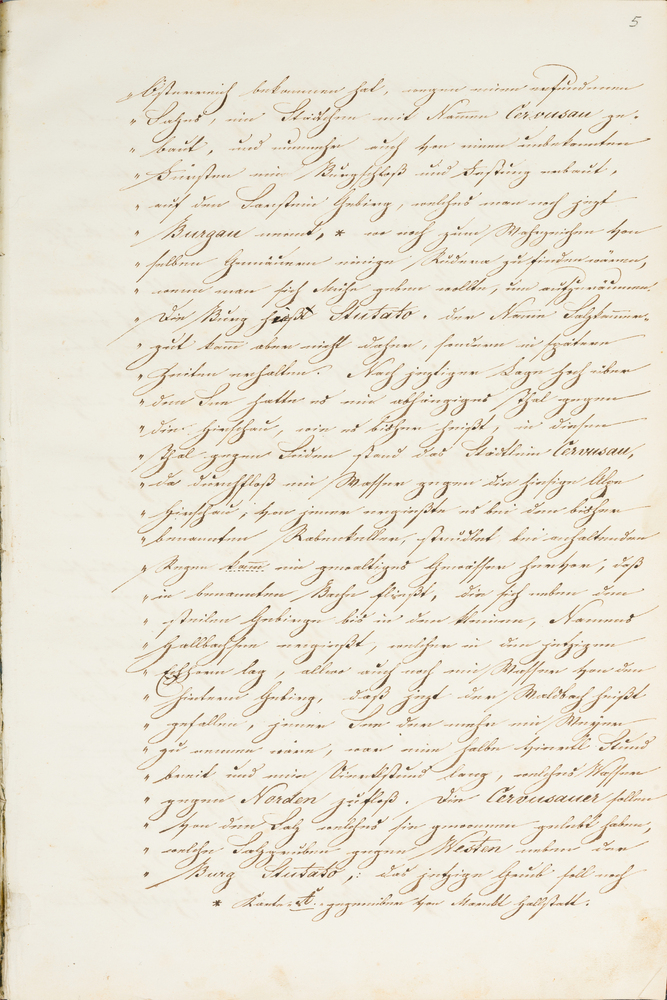 5
„ Österreich bekommen hat, wegen einen erfundenen
„ Salzes, ein Städtchen mit Namen Cervusau ge-
„ baut, und nunmehr auch von einen unbekannten
„ Fürsten ein Burgschloß und Festung erbaut,
„ auf den Sarstein Gebirg, welches man noch jezt
„ Burgau nennt, * wo noch zum Wahrzeichen von
„ selben Gemäuern einige Rudera zu finden wären,
„ wenn man sich Mühe geben wollte, um aufzuräumen.
„ Die Burg hieß Stutato. Der Name Salzkammer-
„ gut kam aber nicht daher, sondern in spätern
„ Zeiten erhalten. Nach jeztiger Lage hoch über
„ dem See hatte es ein abhängiges Thal gegen
„ die Hirschau, wie es bisher heißt, in diesem
„ Thal gegen Süden stand das Städtlein Cervusau,
„ da durchfloß ein Wasser gegen die hiesige Alpe
„ Hirschau, von jener ergießte es bei dem bisher
„ benannten Rabenkeller, strudlet bei anhaltenden
„ Regen kam ein gewaltiges Gewässer hervor, daß
„ in benannten Bache fließt, die sich neben dem
„ steilen Gebirge bis in den kleinen, Namens
„ Hallbachsee ergießt, welcher in den jetzigen
„ Echhern lag, allwo auch noch ein Wasser von den
„ hintern Gebirg, daß jezt der Waldbach heißt
„ gefallen, jener See der mehr ein Weyer
„ zu nennen wäre, war eine halbe Viertl Stund
„ breit und eine Viertlstund lang, welches Wasser
„ gegen Norden zufloß. Die Cervusauer sollen
„ von dem Salz welches sie gewonnen gelebt haben,
„ welche Salzgruben gegen Westen neben der
„ Burg Stutato, das jetzige Grub soll noch
* Karte gegenüber von Markt Hallstatt.